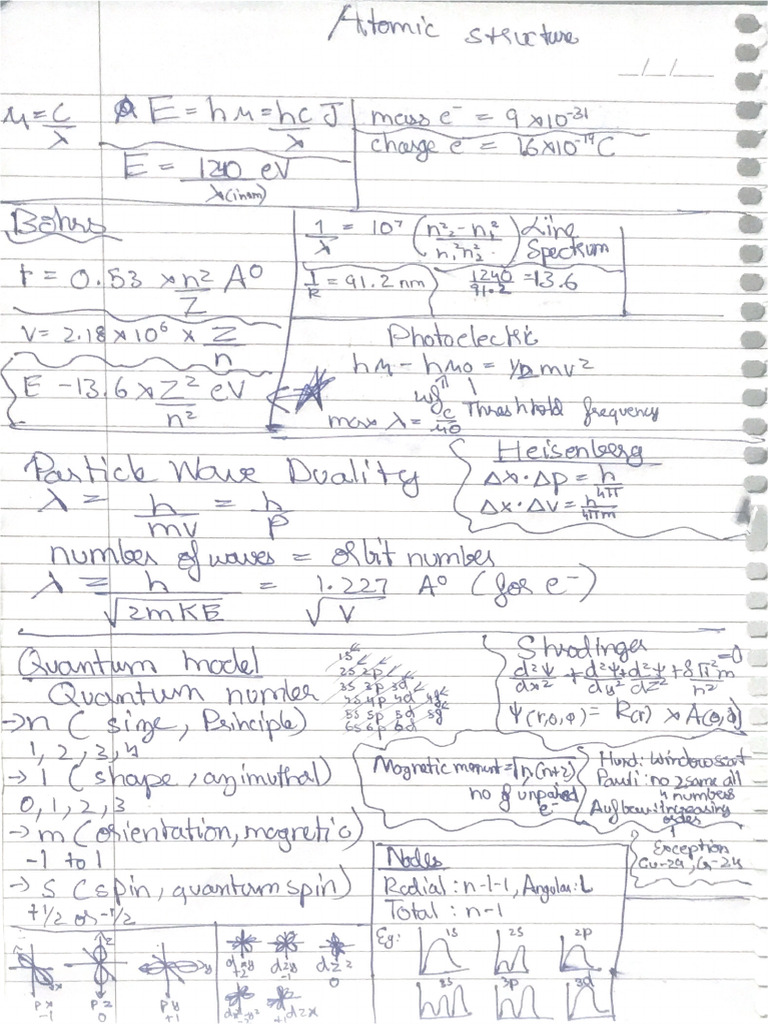 Atomic structure
μ = C/λ
E = hμ = hc/λ J
E = 1240/λ(in nm) eV
mass e⁻ = 9 × 10⁻³¹
charge e⁻ = 16×10⁻¹⁹ C
Bohrs
r = 0.53 × n²/Z A⁰
V = 2.18 × 10⁶ × Z/n
E -13.6 × Z²/n² eV
1/λ = 10⁷ (n₂² - n₁² / n₁² n₂²) Line Spectrum
1/R = 91.2 nm
1240/91.2 = 13.6
Photoelectric
hμ - hμ₀ = 1/2 mv²
wf Threshhold frequency
max λ = c/μ0
Particle Wave Duality
λ = h/mv = h/p
Heisenberg
Δx·Δp = h/4π
Δx·Δv = h/4πm
number of waves = orbit number
λ = h/√2mKE = 1.227/√V A⁰ (for e⁻)
Quantum model
Quantum number
→ n ( size, Principle)
1, 2, 3, 4
→ l ( shape, azimuthal)
0, 1, 2, 3
→ m (orientation, magnetic)
-1 to 1
→ S (spin, quantum spin)
+1/2 or -1/2
1s
2s 2p
3s 3p 3d
4s 4p 4d 4f
5s 5p 5d 5f
6s 6p 6d
Shrodinger
d²Ψ/dx² + d²Ψ/dy² + d²Ψ/dz² + 8π²m/h² = 0
Ψ(r,θ,φ) = R(r) × A(θ,φ)
Magnetic moment = √n(n+2)
no of unpaired e⁻
Hund: Window seat
Pauli: no 2 same all
4 numbers
Aufbau: increasing
order
Exception
Cu-29, Cr-24
Nodes
Radial : n-l-1, Angular : L
Total : n-1
Eg: 1s 2s 2p
3s 3p 3d
z
x
y
px
-1
pz
0
py
+1
dxy
+2
dzy
-1
dz²
0
dx²-y²
dzx
+1